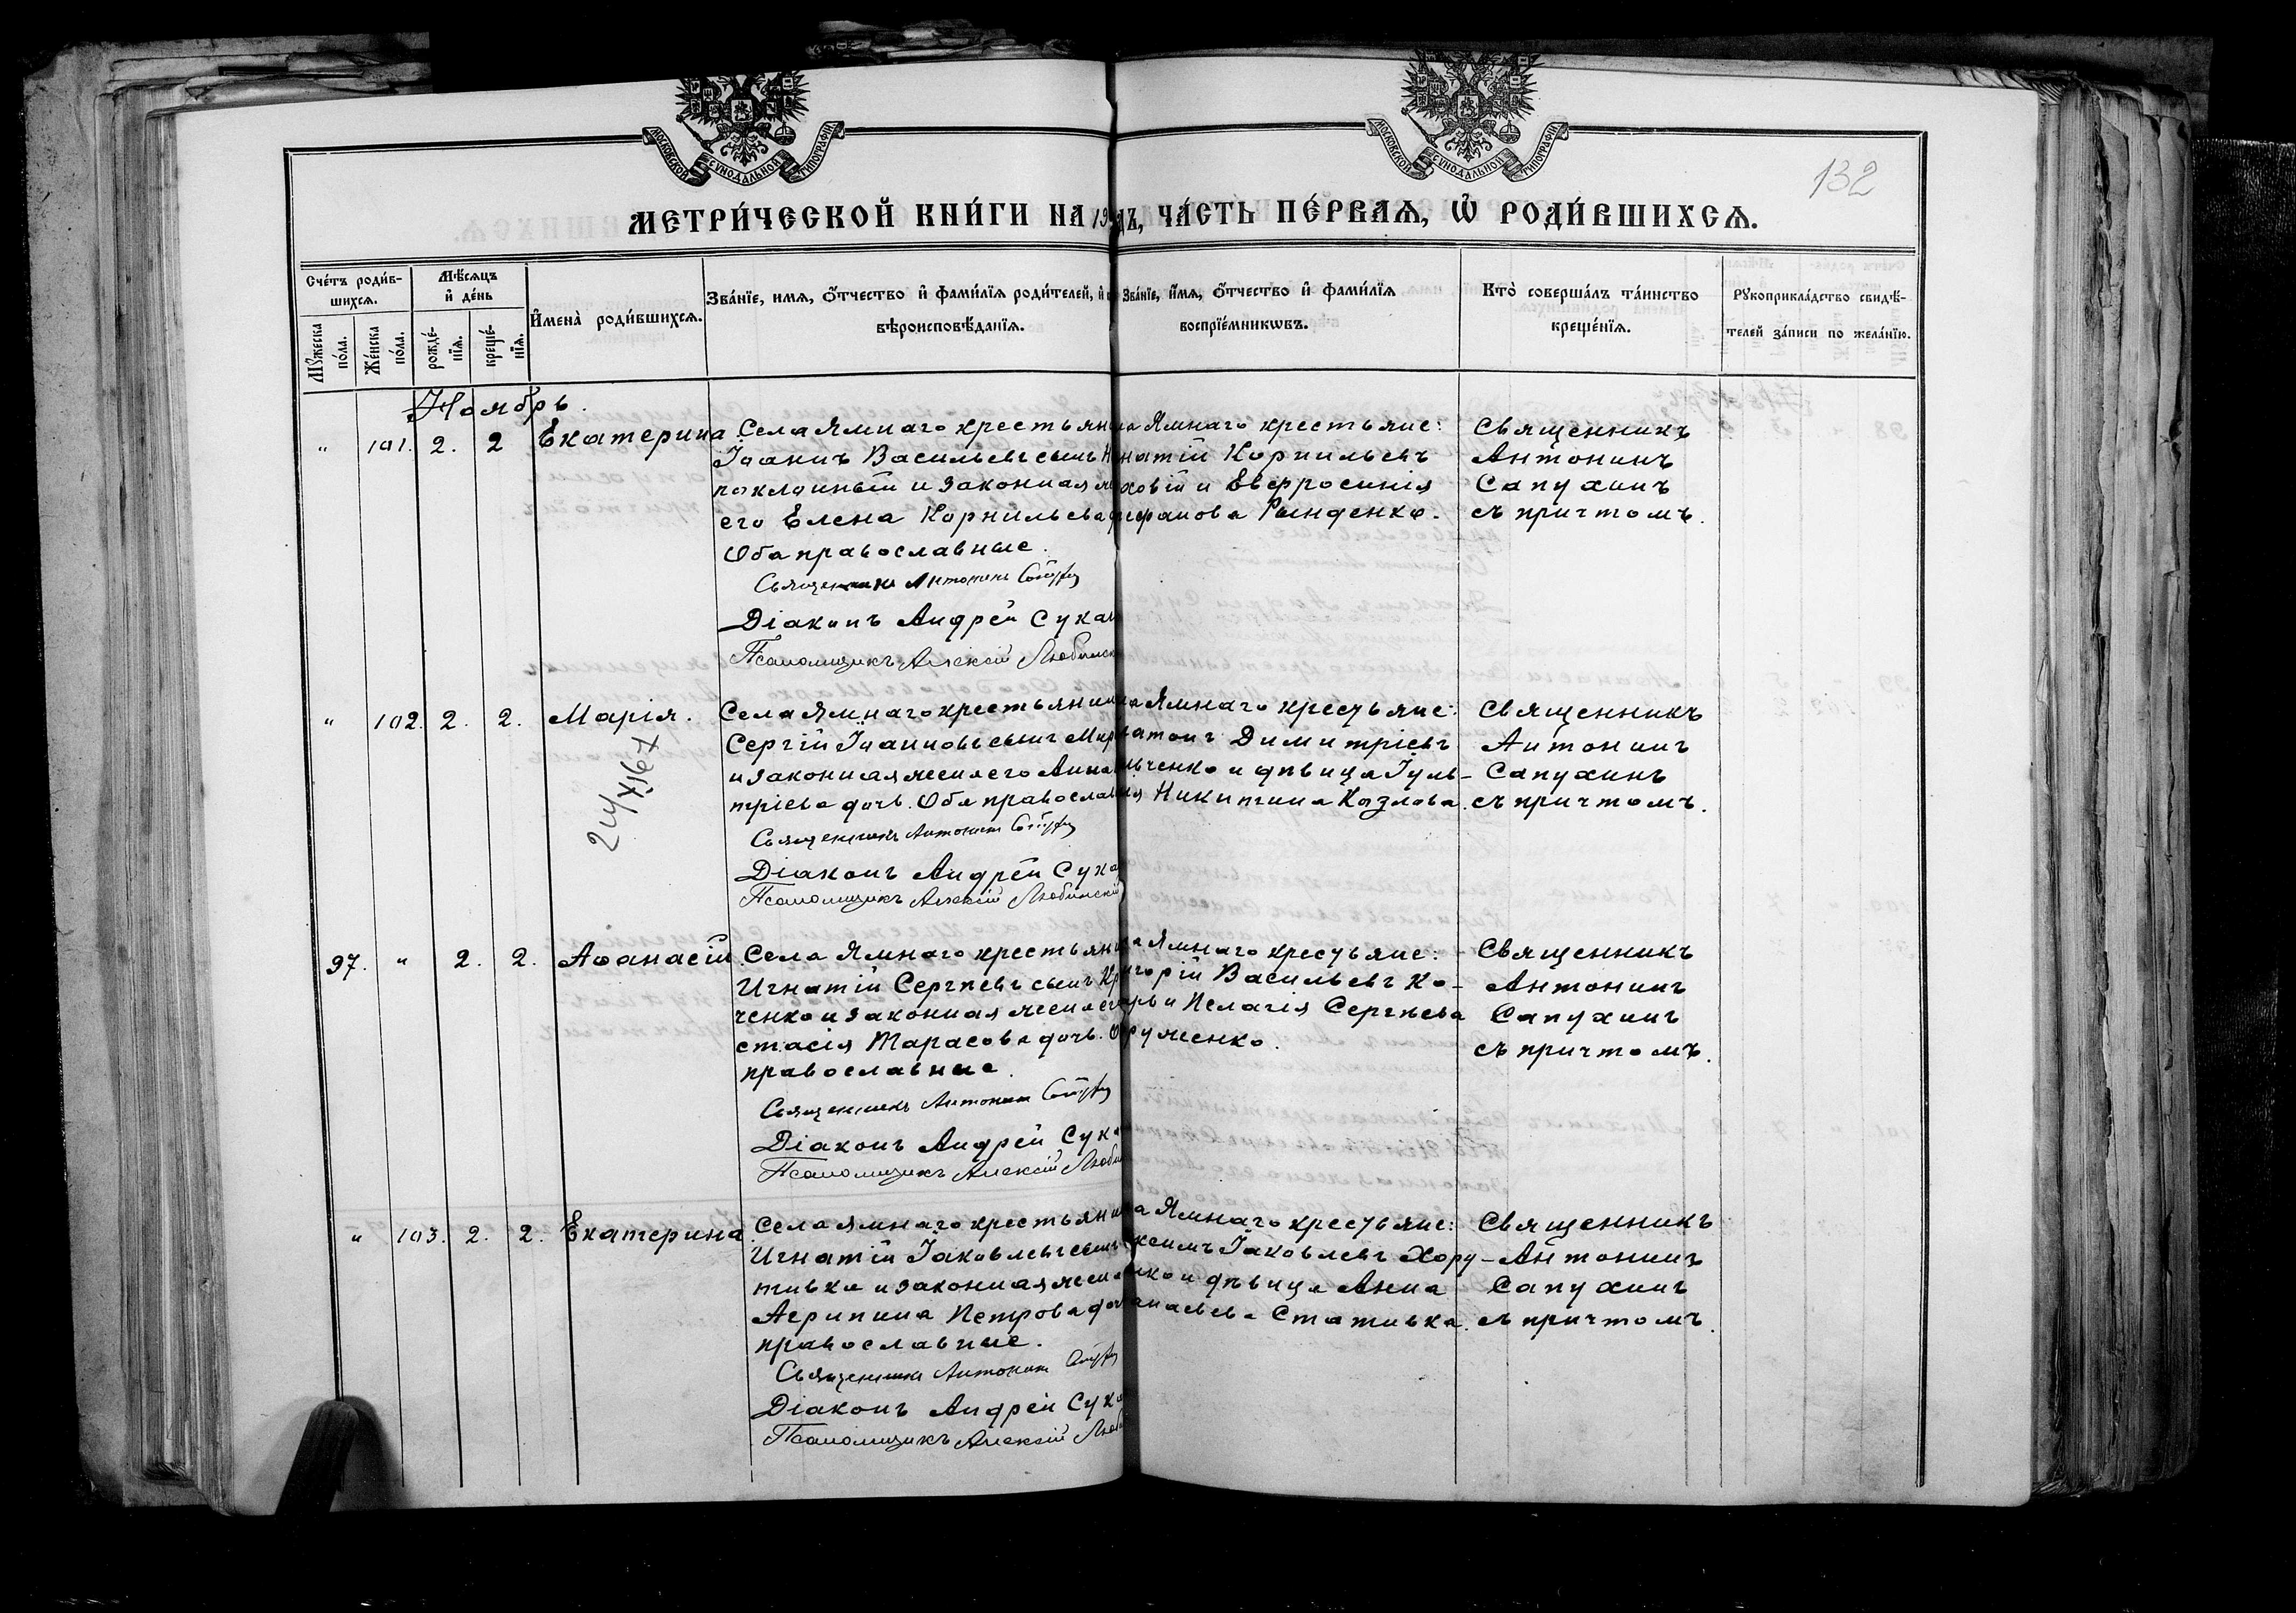 МОСКОВСКОЙ СѴНОДАЛЬНОЙ ТИПОГРАФІИ
МОСКОВСКОЙ СѴНОДАЛЬНОЙ ТИПОГРАФІИ
132
МЕТРИ́ЧЕСКОЙ КНИ́ГИ НА 19
ДЪ, ЧА́СТЬ ПЕ́РВАѦ, Ѡ РОДИ́ВШИХСѦ.
Сче́тъ роди́в-
шихсѧ.
Мꙋ́жеска по́ла.
Же́нска по́ла.
Мѣ́сѧцъ
и҆ де́нь
рожде́-нїѧ.
креще́-нїѧ.
И҆мена̀ роди́вшихсѧ.
Зва́нїе, имѧ, ѻ҆́тчество и҆ фами́лїѧ роди́телей, и҆
вѣроисповѣ́данїѧ.
Зва́нїе, и҆́мѧ, ѻ҆́тчество и҆ фами́лїѧ
воспрїе́мникѡвъ.
Кто̀ соверша́лъ та́инство
креще́нїѧ.
Рꙋкоприкла́дство свидѣ́-
телей за́писи по жела́нїю.
Ноябрь.
" 101. 2. 2 Екатерина
Села Ямнаго крестьян
Іоаннъ Васильевъ сынъ Н
поклонный и законная ж
его Елена Корнильева
Оба православные.
Священникъ Антонинъ
Діаконъ Андрей Сука
Псаломщикъ Алексій Любинск
на Ямнаго крестьяне:
натій Корнильевъ
ховій и Евфросинія
тефанова Рынденко.
Священникъ
Антонинъ
Сапухинъ
съ причтомъ.
" 102. 2. 2. Марія.
24/X 67
Села Ямнаго крестьянин
Сергій Іоанновъ сынъ Мир
и законная жена его Анна
тріева дочь. Оба православ
Священникъ Антонинъ
Діаконъ Андрей Сука
Псаломщикъ Алексій Любинскій
на Ямнаго крестьяне:
атонъ Димитріевъ
ьченко и дѣвица Іуль-
ія Никитина Козлова.
Священникъ
Антонинъ
Сапухинъ
съ причтомъ.
97. " 2. 2. Аѳанасій
Села Ямнаго крестьян
Игнатій Сергѣевъ сынъ Кр
ченко и законная жена ег
стасія Тарасова дочь. О
православные.
Священникъ Антонинъ
Діаконъ Андрей Сук
Псаломщикъ Алексій Любин
а Ямнаго крестьяне:
игорій Васильевъ Ко-
рь и Пелагія Сергѣева
руженко.
Священникъ
Антонинъ
Сапухинъ
съ причтомъ.
" 103. 2. 2. Екатерина
Села Ямнаго крестьяни
Игнатій Іаковлевъ сынъ
тивка и законная жена
Агрипина Петрова доч
православные.
Священникъ Антонинъ
Діаконъ Андрей Сука
Псаломщикъ Алексій Люб
а Ямнаго крестьяне:
ксимъ Іаковлевъ Хору-
нко и дѣвица Анна
анасьева Стативка.
Священникъ
Антонинъ
Сапухинъ
съ причтомъ.